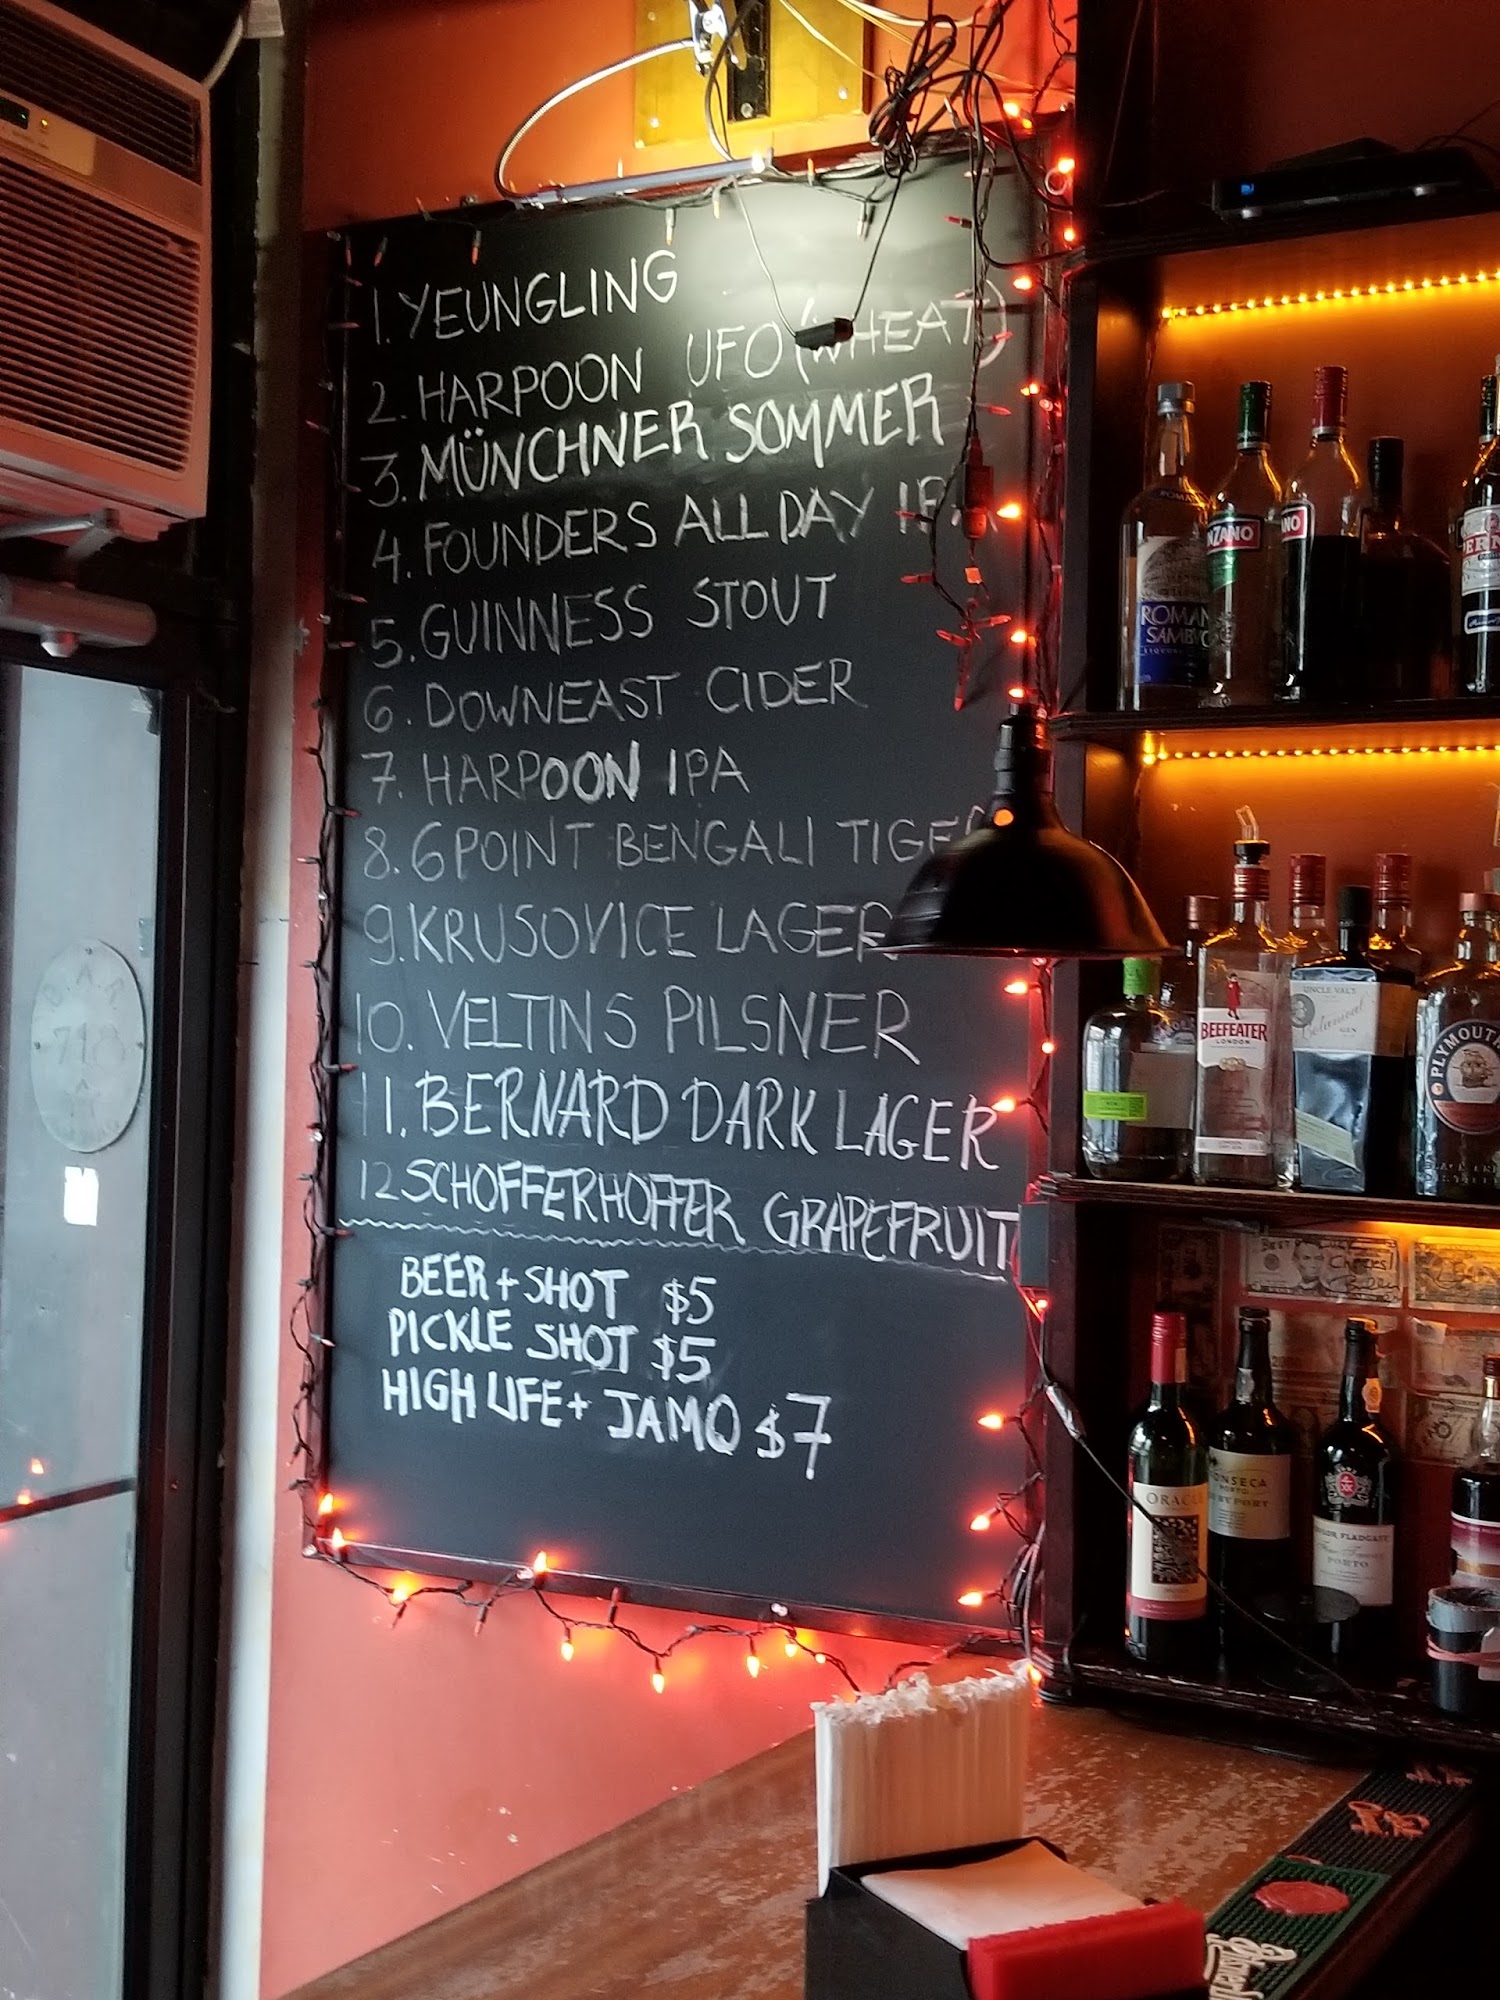 1. YEUNGLING
2. HARPOON UFO (WHEAT)
3. MÜNCHNER SOMMER
4. FOUNDERS ALL DAY IPA
5. GUINNESS STOUT
6. DOWNEAST CIDER
7. HARPOON IPA
8. 6POINT BENGALI TIGER
9. KRUSOVICE LAGER
10. VELTINS PILSNER
11. BERNARD DARK LAGER
12 SCHOFFERHOFFER GRAPEFRUIT
BEER + SHOT $5
PICKLE SHOT $5
HIGH LIFE + JAMO $7
BAR
718
ROMAN
NZANO
NO
BEEFEATER
LONDON
UNCLE VAL'S
Botanical
GIN
PLYMOUTH
Cheers!
ORACL
ONSECA
PORTO
BY PORT
LOR FLADGAT
PORTO